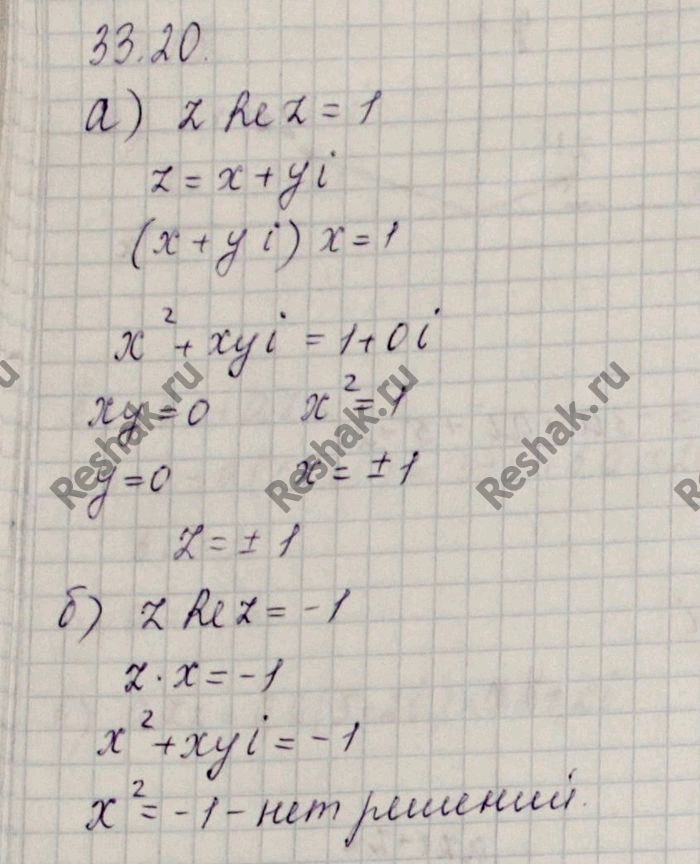 33.20.
а) z Re z = 1
z = x + yi
(x + yi) x = 1
x² + xyi = 1 + 0i
xy = 0 x² = 1
y = 0 x = ± 1
z = ± 1
б) z Re z = -1
z · x = -1
x² + xyi = -1
x² = -1 - нет решений.
Reshak.ru
Reshak.ru
Reshak.ru